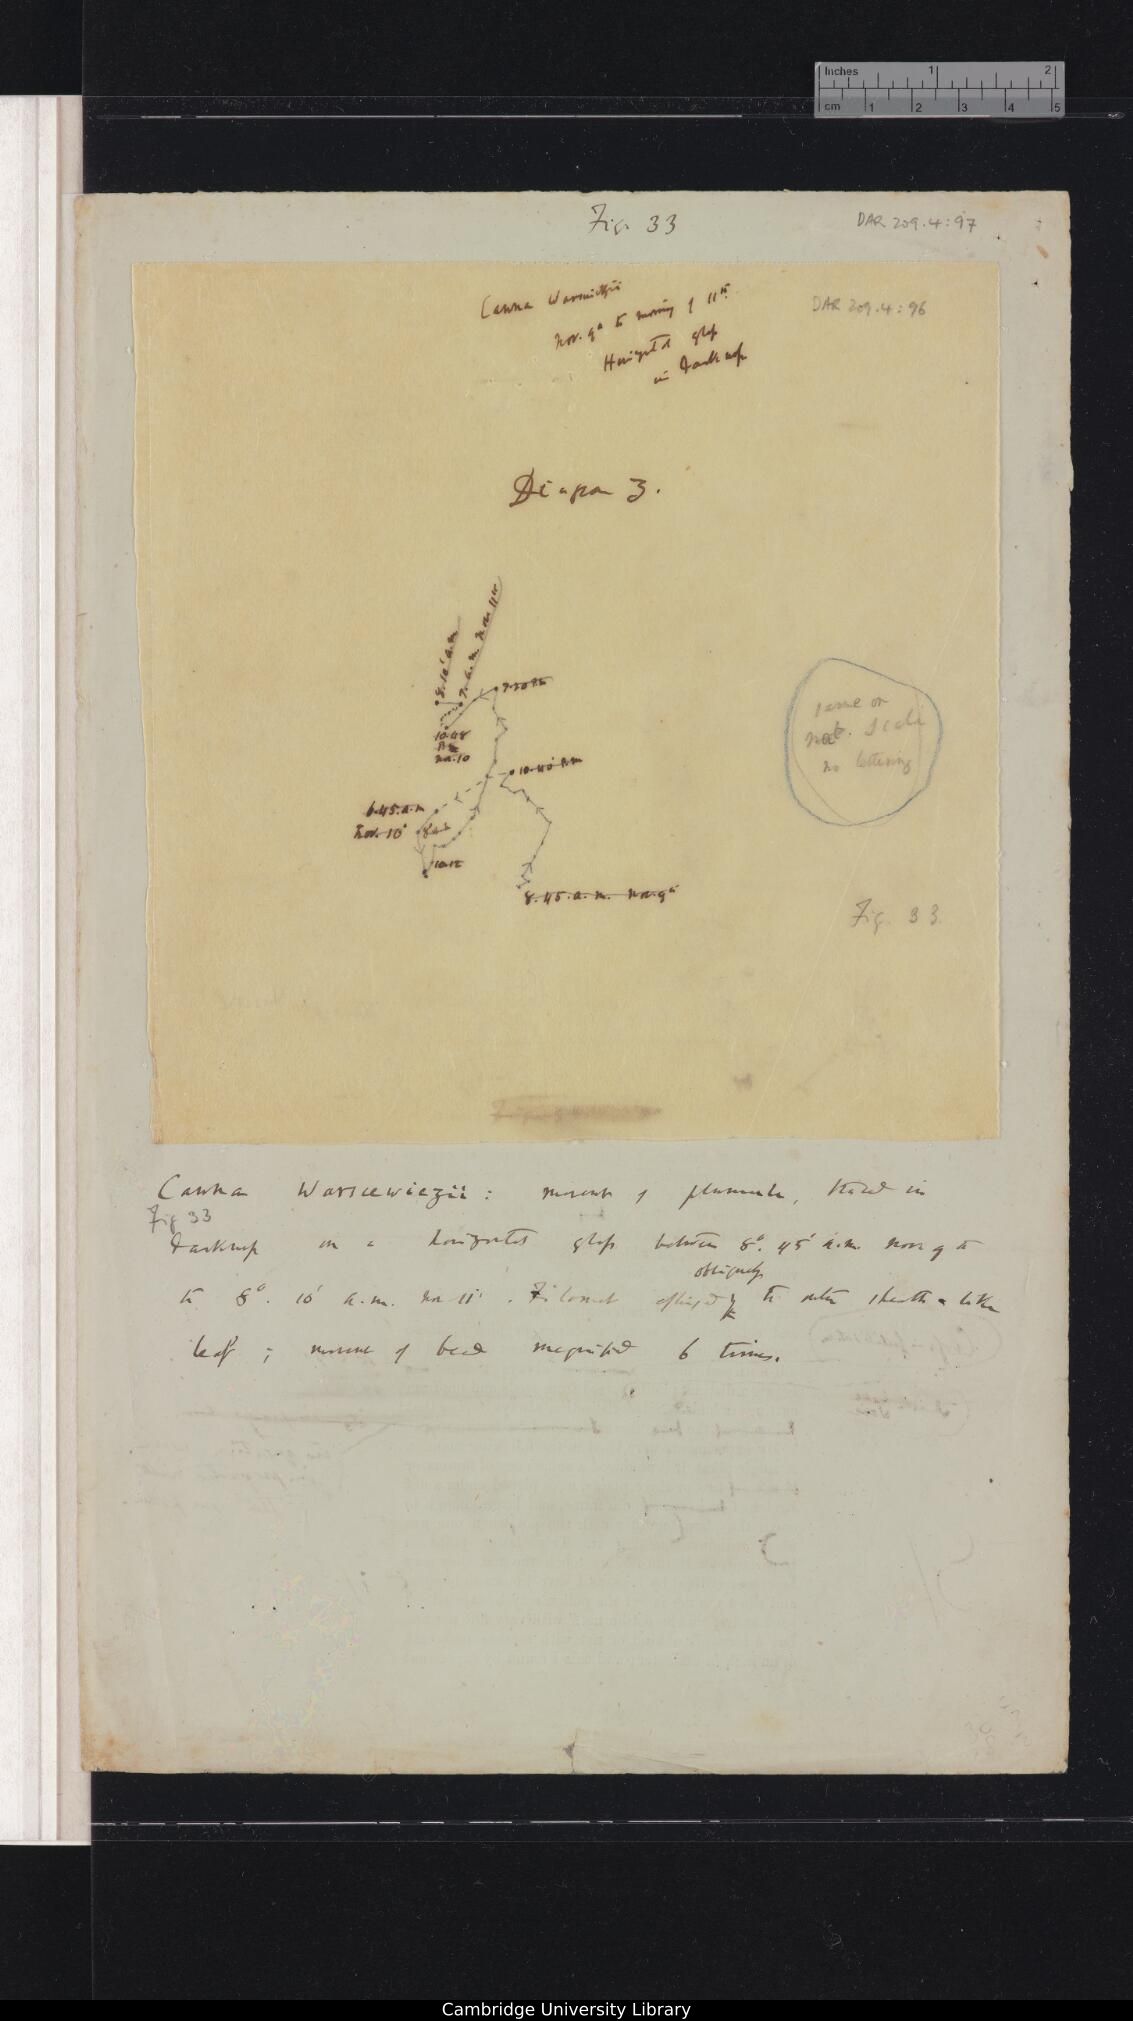 Inches 1 2
cm 1 2 3 4 5
Fig. 33
DAR 209.4:97
Canna Warsciewiczii
DAR 209.4:96
Nov. 9th to morning of 11th
Horizontal glass
in darkness
Diagram 3.
8.10' a.m
7. a.m Nov 11th
7.20 P.m
10.45
P.m
Nov. 10
10.40 P.m
6.45. a.m
Nov. 10th
10.12
8.45. a.m. Nov. 9th
same on
not. scale
no lettering
Fig. 33.
Canna Warscewiczii: movement of plumule, traced in
Fig 33
darkness on a horizontal glass between 8°. 45' a.m. Nov 9th
to 8°. 10' a.m. Nov 11th. Filament
obliquely
to outer sheath-like
leaf; movement of bead magnified 6 times.
Cambridge University Library